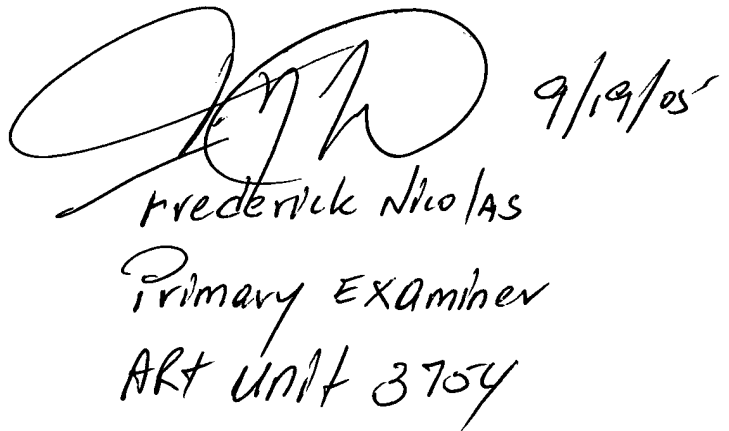 9/19/05
Frederick Nicolas
Primary Examiner
Art Unit 3754